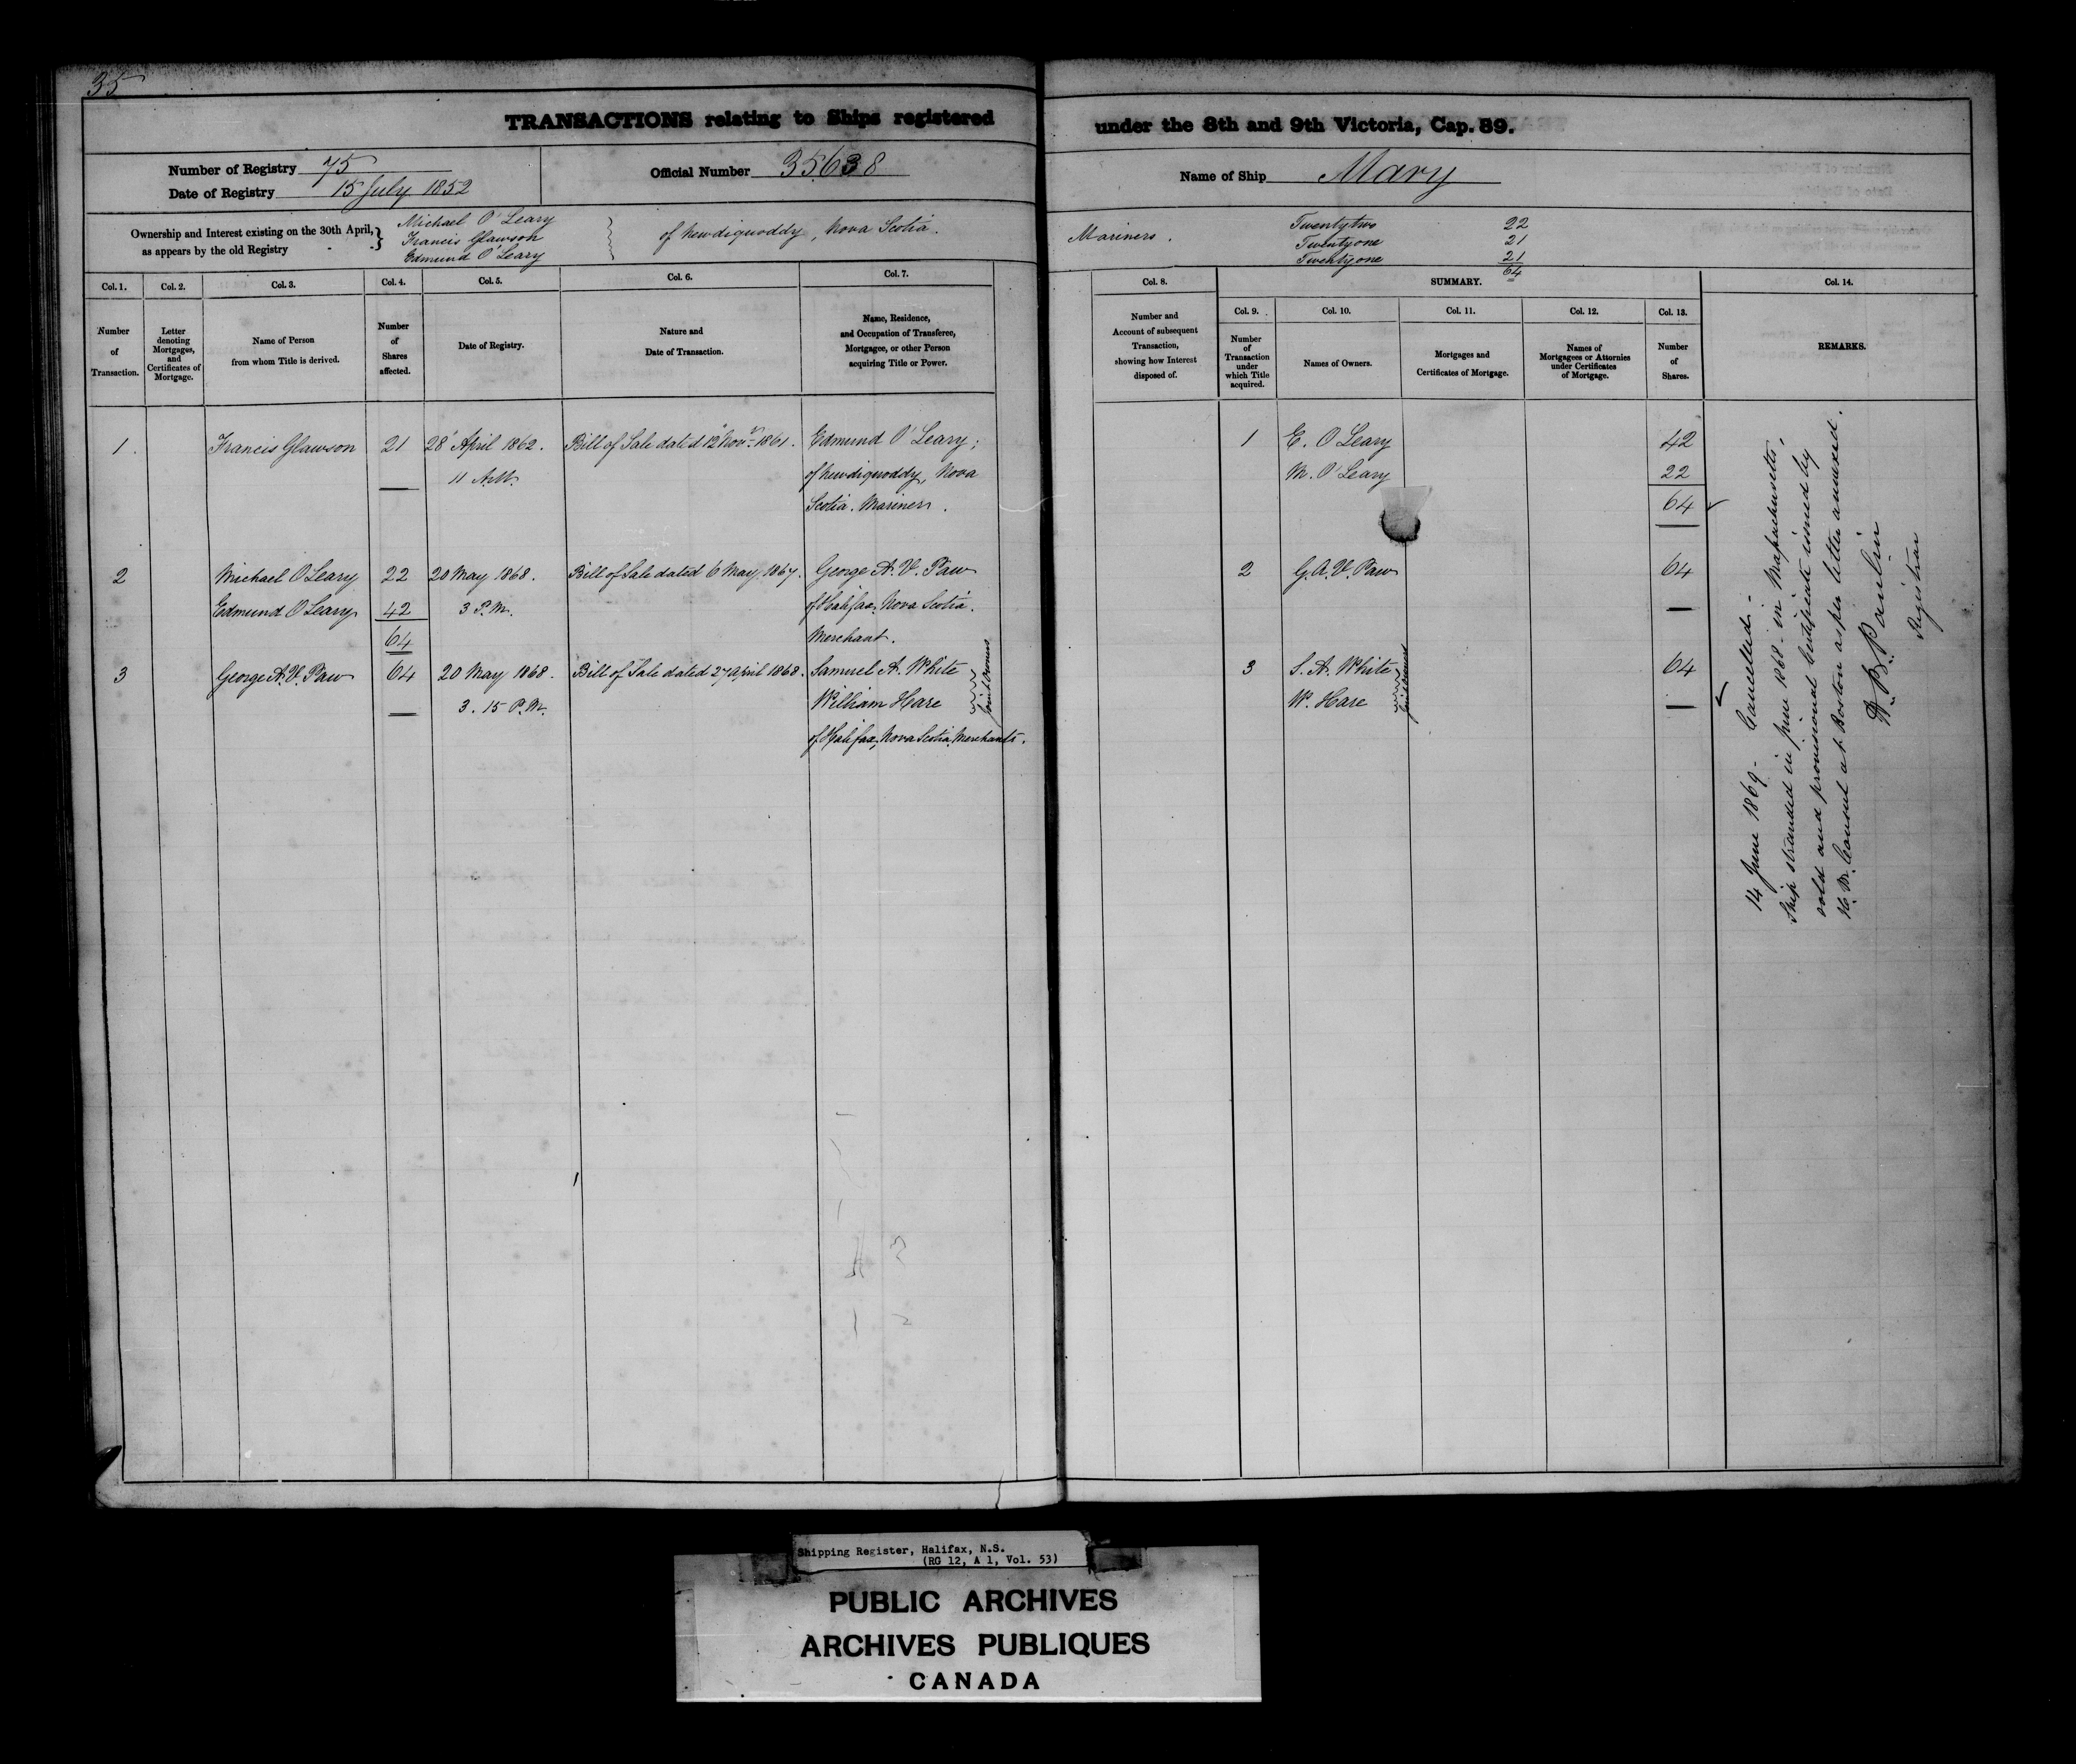 35
TRANSACTIONS relating to Ships registered under the 8th and 9th Victoria, Cap. 89.
Number of Registry 75
Date of Registry 15 July 1852
Official Number 35638
Name of Ship Mary
Ownership and Interest existing on the 30th April, as appears by the old Registry
Michael O'Leary
Francis Glawson
Edmund O'Leary
of Newdiquoddy, Nova Scotia.
Mariners.
Twentytwo 22
Twentyone 21
Twentyone 21
64
Col. 1. Number of Transaction.
Col. 2. Letter denoting Mortgages, and Certificates of Mortgage.
Col. 3. Name of Person from whom Title is derived.
Col. 4. Number of Shares affected.
Col. 5. Date of Registry.
Col. 6. Nature and Date of Transaction.
Col. 7. Name, Residence, and Occupation of Transferee, Mortgagee, or other Person acquiring Title or Power.
Col. 8. Number and Account of subsequent Transaction, showing how Interest disposed of.
SUMMARY.
Col. 9. Number of Transaction under which Title acquired.
Col. 10. Names of Owners.
Col. 11. Mortgages and Certificates of Mortgage.
Col. 12. Names of Mortgagees or Attornies under Certificates of Mortgage.
Col. 13. Number of Shares.
Col. 14. REMARKS.
1. Francis Glawson 21 28 April 1862. Bill of Sale dated 12 Novr 1861. Edmund O'Leary;
11 A.M. of Newdiquoddy, Nova
Scotia. Mariner.
2 Michael O'Leary 22 20 May 1868. Bill of Sale dated 6 May 1867. George A. V. Paw
Edmund O'Leary 42 3 P.M. of Halifax, Nova Scotia.
64 Merchant.
3 George A. V. Paw 64 20 May 1868. Bill of Sale dated 27 April 1868. Samuel A. White
3.15 P.M. William Hare
Joint Owners
of Halifax, Nova Scotia, Merchants.
1 E. O'Leary 42
M. O'Leary 22
64
2 G. A. V. Paw 64
3 S. A. White 64
W. Hare
Joint Owners
14 June 1869 - Cancelled -
Ship stranded in June 1868 in Massachusetts,
sold and provisional Certificate issued by
H. B. M. Consul at Boston as per letter annexed.
Registrar
Shipping Register, Halifax, N.S.
(RG 12, A 1, Vol. 53)
PUBLIC ARCHIVES
ARCHIVES PUBLIQUES
CANADA